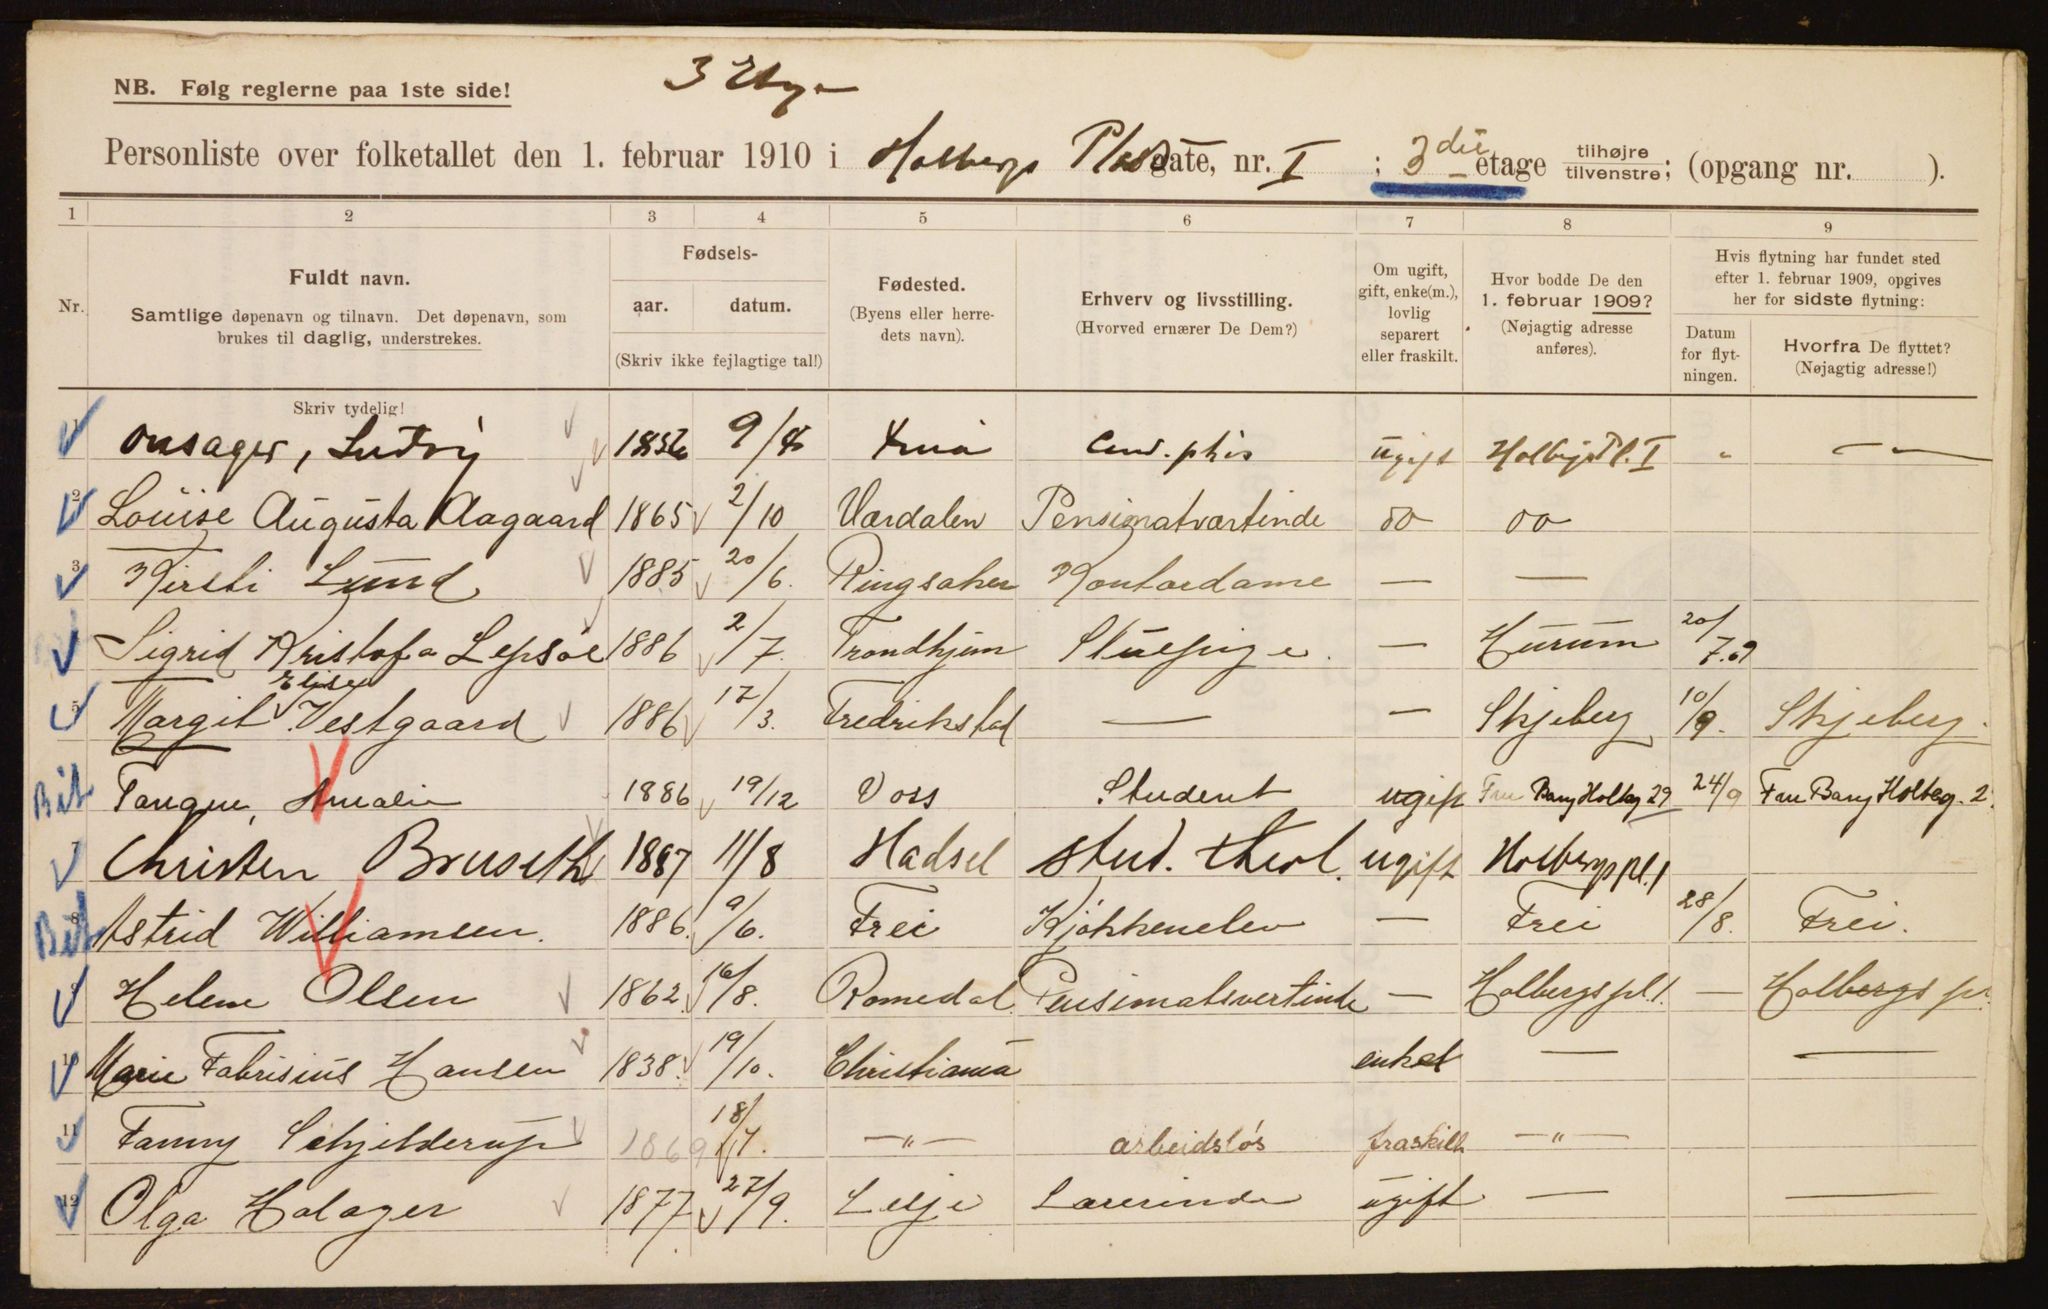 3 Etg.
NB. Følg reglerne paa 1ste side!
Personliste over folketallet den 1. februar 1910 i Holbergs Plads gate, nr. I ; 3die etage tilhøjre tilvenstre; (opgang nr. ).
1 2 3 4 5 6 7 8 9
Nr.
Fuldt navn.
Samtlige døpenavn og tilnavn. Det døpenavn, som
brukes til daglig, understrekes.
Skriv tydelig!
Fødsels-
aar. datum.
(Skriv ikke fejlagtige tal!)
Fødested.
(Byens eller herre-
dets navn).
Erhverv og livsstilling.
(Hvorved ernærer De Dem?)
Om ugift,
gift, enke(m.),
lovlig
separert
eller fraskilt.
Hvor bodde De den
1. februar 1909?
(Nøjagtig adresse
anføres).
Hvis flytning har fundet sted
efter 1. februar 1909, opgives
her for sidste flytning:
Datum
for flyt-
ningen.
Hvorfra De flyttet?
(Nøjagtig adresse!)
1 Onsager, Ludvig cand. phis ugift Holbgs Pl. I " —
2 Louise Augusta Aagaard 1865 2/10 Værdalen Pensionatværtinde do do
3 Kirsti Lund 1885 20/6. Ringsaker Kontordame — —
Sigrid Kristofa Lepsöe 1886 2/7. Trondhjem — Hurum 20/7.09
5 Margit Elise Vestgaard 1886 17/3. Fredrikstad — — Skjeberg 10/9. Skjeberg.
Bit 1886 19/12 Voss Student ugift Fru Bang Holbg 29 24/9 Fru Bang Holbeg. 2
7 Christen Bruseth 1887 11/8 Hadsel stud. theol. ugift Holbergs pl. 1
Bit 8 Astrid Williamsen. 1886. 9/6. Frei Kjøkkenelev — Frei 28/8. Frei.
9 Helene Olsen 1862. 16/8. Romedal Pensionatsvertinde — Holbergs pl. 1. — Holbergs pl.
10 Marie Fabrisius Hansen 1838. 19/10. Christiania enke — —
11 Fanny Schjelderup 1869 18/4. —"— arbeidsløs fraskilt —"—
12 Olga Holager 1877 27/9. Lesje Lærerinde ugift — —